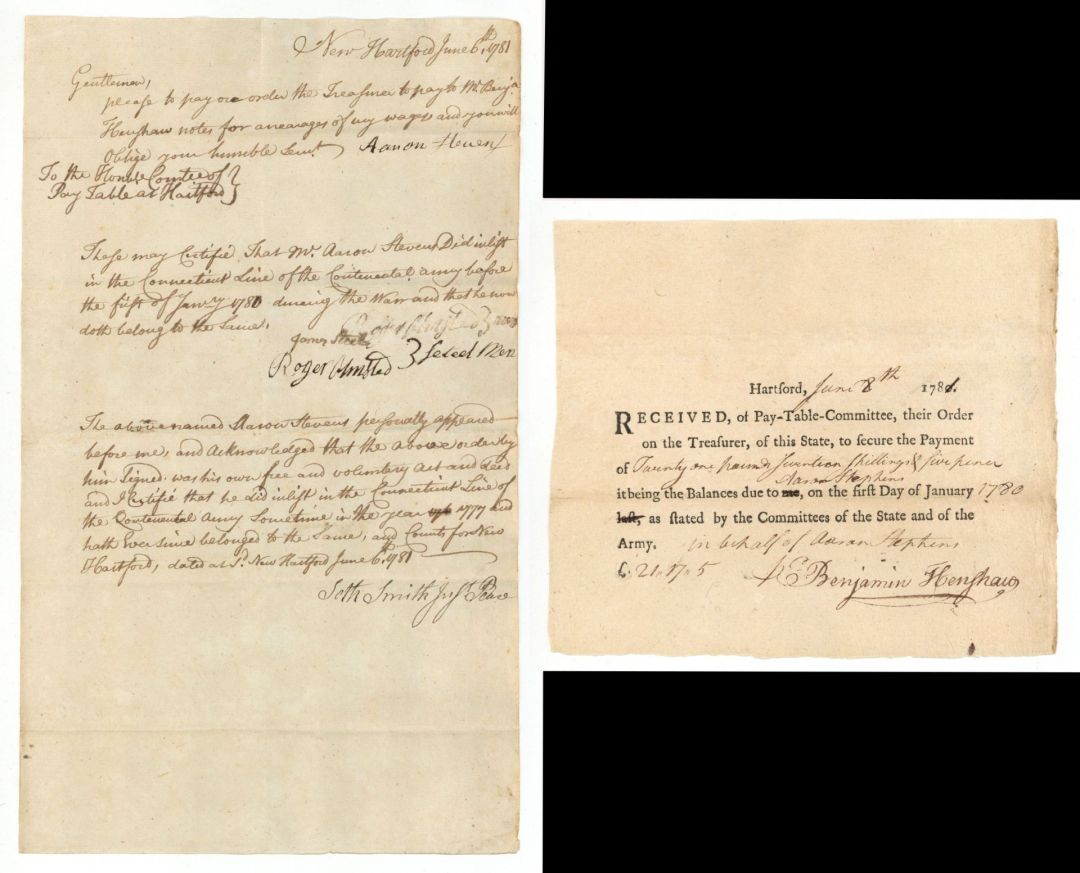 New Hartford June 6th, 1781
Gentlemen,
please to pay or order the Treasurer to pay to Mr. Benja
Henshaw notes for arrearages of my wages and you will
Oblige your humble Servt. Aaron
To the Honble Comtee of }
Pay Table at Hartford }
These may Certify That Mr. Aaron Stevens Did inlist
in the Connecticut Line of the Continental army before
the first of Janry 1780 during the Warr and that he now
doth belong to the Same.
James
Roger Olmsted } Select Men
The above named Aaron Stevens personally appeared
before me, and Acknowledged that the above order by
him Signed was his own free and voluntery act and deed
and I Certify that he did inlist in the Connecticut Line of
the Continental army Sometime in the year 1777 and
hath Ever since belonged to the Same, and Counts for New
Hartford, dated at Sd. New Hartford June 6th, 1781
Seth Smith Just Peace
Hartford, June 8th 1781.
RECEIVED, of Pay-Table-Committee, their Order
on the Treasurer, of this State, to secure the Payment
of Twenty one pounds Seventeen Shillings & five pence
Aaron Stephens
it being the Balances due to me, on the first Day of January 1780
last, as stated by the Committees of the State and of the
Army. in behalf of Aaron Stephens
£21-17-5 Benjamin Henshaw